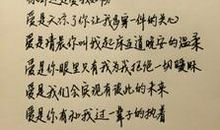 爱是天凉了你让我多穿一件的关心
爱是清晨你叫我起床互道晚安的温柔
爱是你眼里只有我为我拒绝一切暧昧
爱是我们会展现有彼此的未来
爱是你有和我过一辈子的执着